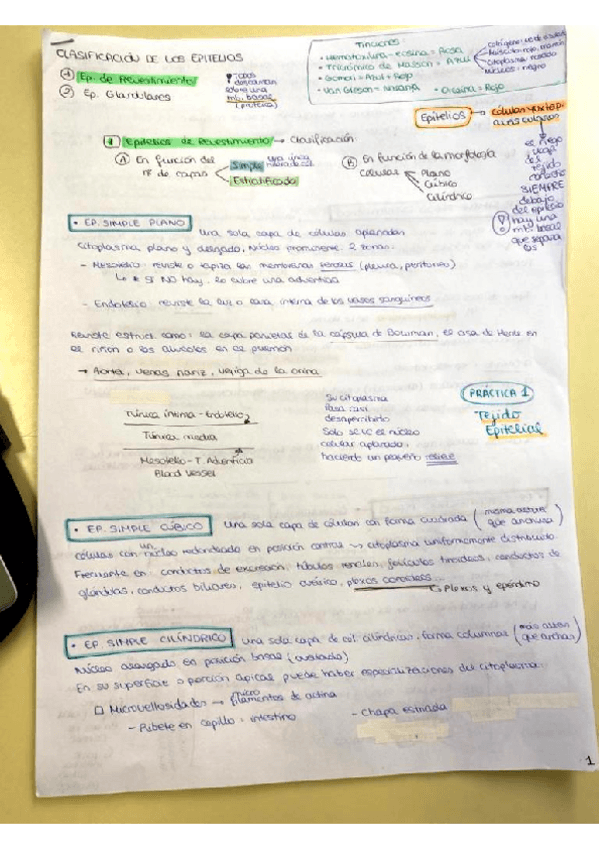 CLASIFICACIÓN DE LOS EPITELIOS
① Ep. de Revestimiento
② Ep. Glandulares
Todos descansan sobre una mb. basal (proteica)
Tinciones
• Hematoxilina - eosina = Rosa
• Tricrómico de Masson = Azul
• Gomori = Azul + Rojo
• Van Gieson = Naranja • Orceína = Rojo
citoplasma rosado
núcleos: negro
Epitelios → células
SIEMPRE debajo del epitelio hay una mb. basal que separa
1 Epitelios de Revestimiento → Clasificación
A En función del nº de capas
Simple
Estratificado
B En función de la morfología celular
Plano
Cúbico
Cilíndrico
• EP. SIMPLE PLANO
una sola capa de células aplanadas
Citoplasma plano y delgado, núcleo prominente. 2 zonas:
- Mesotelio: reviste o tapiza las membranas serosas (pleura, peritoneo)
Si NO hay, es sobre una adventicia
- Endotelio: reviste la luz o cara interna de los vasos sanguíneos
Reviste estruct. como: la capa parietal de la cápsula de Bowman, el asa de Henle en
el riñón o los alveolos en el pulmón
→ Aorta, venas nariz, vejiga de la orina
Túnica interna - Endotelio
Túnica media
Mesotelio - T. Adventicia
Blood Vessel
Su citoplasma
Pasa casi
desapercibido
Solo se ve el núcleo
celular aplanado
haciendo un pequeño relieve
PRÁCTICA 1
Tejido
Epitelial
• EP. SIMPLE CÚBICO
una sola capa de células con forma cuadrada (misma altura que anchura)
células con un núcleo redondeado en posición central → citoplasma uniformemente distribuido
Frecuente en: conductos de excreción, túbulos renales, folículos tiroideos, conductos de
glándulas, conductos biliares, epitelio ovárico, plexos coroideos
Plexos y epéndimo
• EP. SIMPLE CILÍNDRICO
una sola capa de cél. cilíndricas, forma columnar (más altas que anchas)
Núcleo alargado en posición basal (ovalado)
En su superficie o porción apical puede haber especializaciones del citoplasma:
□ Microvellosidades → microfilamentos de actina
- Ribete en cepillo: intestino
- Chapa estriada
1